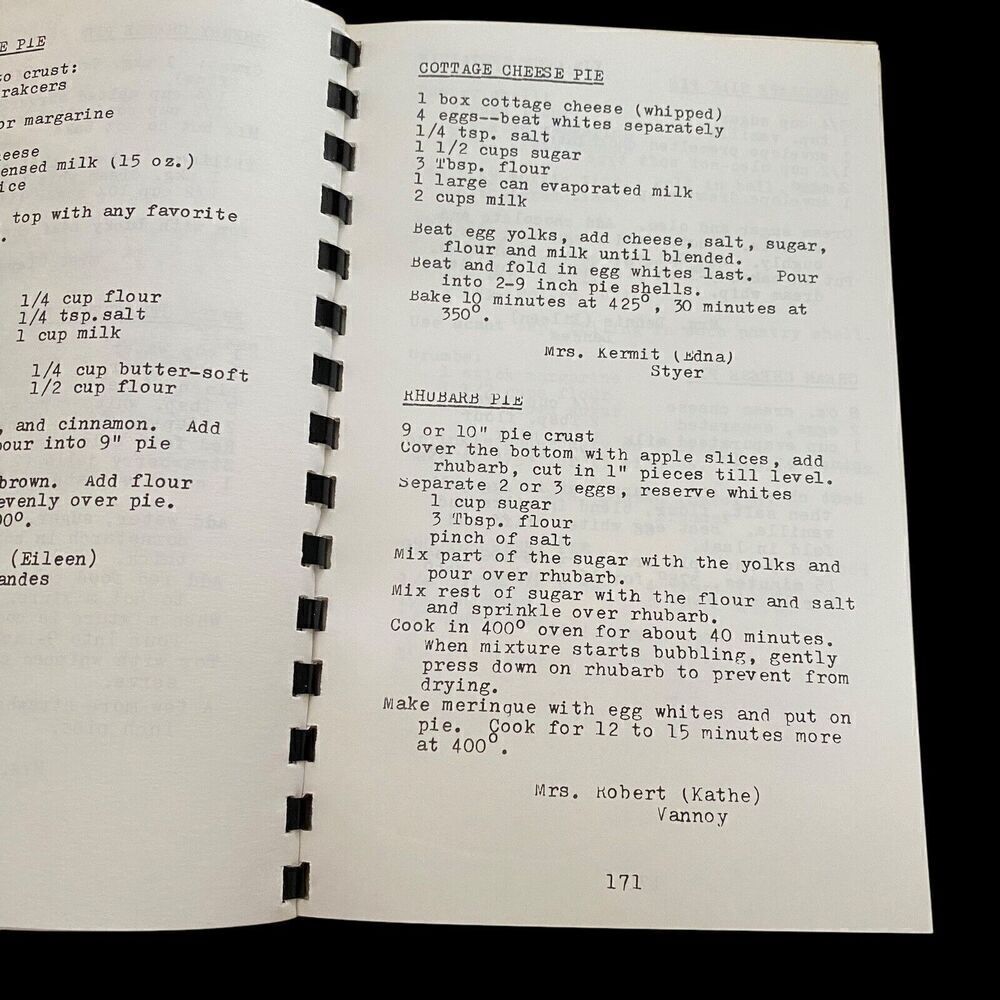 E PIE
to crust:
rakcers
or margarine
eese
ensed milk (15 oz.)
ice
top with any favorite
.
1/4 cup flour
1/4 tsp.salt
1 cup milk
1/4 cup butter-soft
1/2 cup flour
, and cinnamon. Add
pour into 9" pie
brown. Add flour
evenly over pie.
00°.
(Eileen)
andes
COTTAGE CHEESE PIE
1 box cottage cheese (whipped)
4 eggs--beat whites separately
1/4 tsp. salt
1 1/2 cups sugar
3 Tbsp. flour
1 large can evaporated milk
2 cups milk
Beat egg yolks, add cheese, salt, sugar,
flour and milk until blended.
Beat and fold in egg whites last. Pour
into 2-9 inch pie shells.
Bake 10 minutes at 425°, 30 minutes at
350°.
Mrs. Kermit (Edna)
Styer
RHUBARB PIE
9 or 10" pie crust
Cover the bottom with apple slices, add
rhubarb, cut in 1" pieces till level.
Separate 2 or 3 eggs, reserve whites
1 cup sugar
3 Tbsp. flour
pinch of salt
Mix part of the sugar with the yolks and
pour over rhubarb.
Mix rest of sugar with the flour and salt
and sprinkle over rhubarb.
Cook in 400° oven for about 40 minutes.
When mixture starts bubbling, gently
press down on rhubarb to prevent from
drying.
Make meringue with egg whites and put on
pie. Cook for 12 to 15 minutes more
at 400°.
Mrs. Robert (Kathe)
Vannoy
171